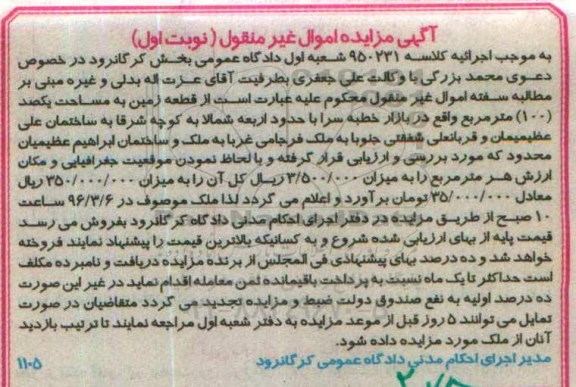 آگهی مزایده اموال غیر منقول ( نوبت اول)
به موجب اجرائیه کلاسه ۹۵۰۲۳۱ شعبه اول دادگاه عمومی بخش کرگانرود در خصوص
دعوی محمد بزرگی با وکالت علی جعفری بطرفیت آقای عزت اله بدلی و غیره مبنی بر
مطالبه سفته اموال غیر منقول محکوم علیه عبارت است از قطعه زمین به مساحت یکصد
(۱۰۰) مترمربع واقع در بازار خطبه سرا با حدود اربعه شمالا به کوچه شرقا به ساختمان علی
عظیمیمان و قربانعلی شفقتی جنوبا به ملک فرجامی غربا به ملک و ساختمان ابراهیم عظیمیان
محدود که مورد بررسی و ارزیابی قرار گرفته و با لحاظ نمودن موقعیت جغرافیایی و مکان
ارزش هر مترمربع را به میزان ۳/۵۰۰/۰۰۰ ریال کل آن را به میزان ۳۵۰/۰۰۰/۰۰۰ ریال
معادل ۳۵/۰۰۰/۰۰۰ تومان برآورد و اعلام می گردد لذا ملک موصوف در ۹۶/۳/۶ ساعت
۱۰ صبح از طریق مزایده در دفتر اجرای احکام مدنی دادگاه کرگانرود بفروش می رسد
قیمت پایه از بهای ارزیابی شده شروع و به کسانیکه بالاترین قیمت را پیشنهاد نمایند فروخته
خواهد شد و ده درصد بهای پیشنهادی فی المجلس از برنده مزایده دریافت و نامبرده مکلف
است حداکثر تا یک ماه نسبت به پرداخت باقیمانده ثمن معامله اقدام نماید در غیر این صورت
ده درصد اولیه به نفع صندوق دولت ضبط و مزایده تجدید می گردد متقاضیان در صورت
تمایل می توانند ۵ روز قبل از موعد مزایده به دفتر شعبه اول مراجعه نمایند تا ترتیب بازدید
آنان از ملک مورد مزایده داده شود.
مدیر اجرای احکام مدنی دادگاه عمومی کرگانرود ۱۱۰۵